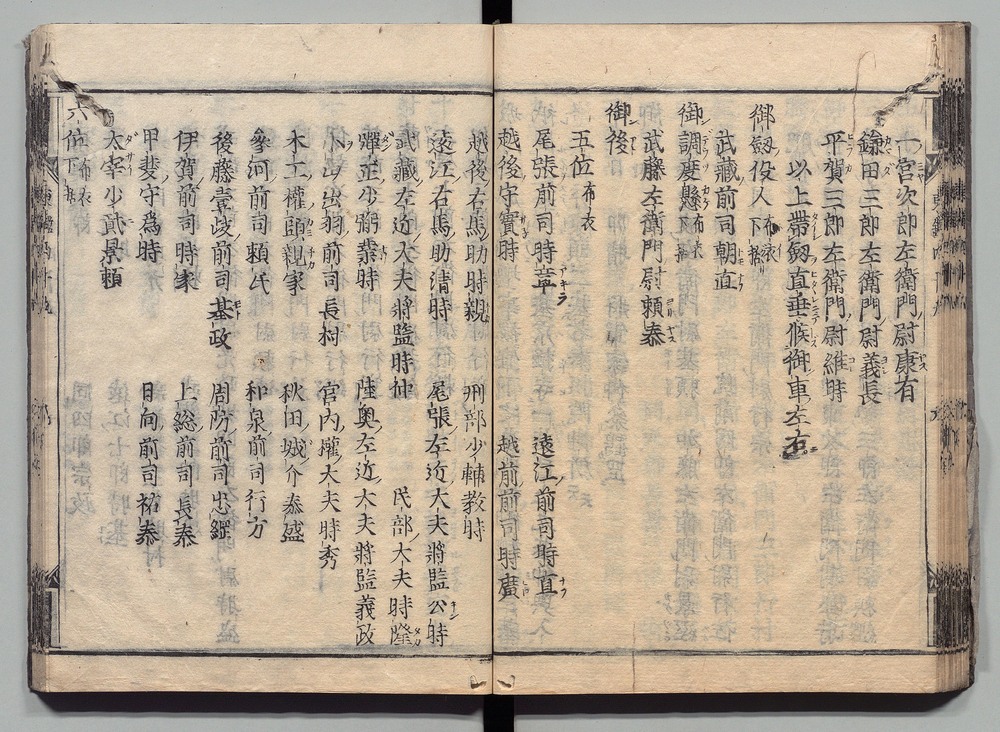 一宮次郎左衛門尉康有
鎌田三郎左衛門尉義長
平賀三郎左衛門尉維時
以上帶釼直垂候御車左右
御釼役人 布衣 下括
武藏前司朝直
御調度懸 布衣 下括
武藤左衛門尉頼泰
御後
五位 布衣
尾張前司時章 遠江前司時直
越後守實時 越前前司時廣
越後右馬助時親 刑部少輔教時
遠江右馬助清時 尾張左近大夫將監公時
武藏左近大夫將監時仲 民部大夫時隆
彈正少弼業時 陸奥左近大夫將監義政
出羽前司長村 宮内權大夫時秀
木工權頭親家 秋田城介泰盛
參河前司頼氏 和泉前司行方
後藤壹岐前司基政 周防前司忠綱
伊賀前司時家 上総前司長泰
甲斐守為時 日向前司祐泰
太宰少貳景頼
六位 布衣 下括